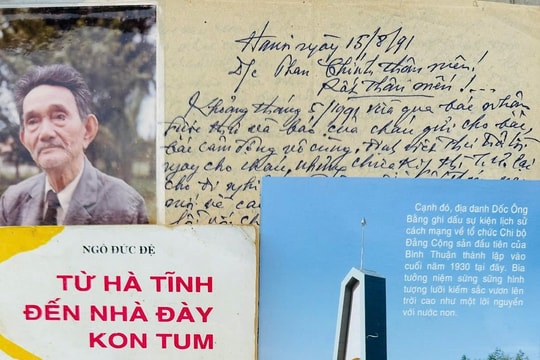 Hanoi ngày 15/8/91
Phan Chính thân mến!
Rất thân mến!...
Khoảng tháng 5/1991 vừa qua bác nhận
được thư và báo của cháu gửi cho bác,
bác cảm động vô cùng, định viết thư trả lời
ngay cho cháu, nhưng chưa kịp thì
cho đi
NGÔ ĐỨC ĐỆ
TỪ HÀ TĨNH
ĐẾN NHÀ ĐÀY
KON TUM
Cạnh đó, địa danh Dốc Ông
Bằng ghi dấu sự kiện lịch sử
cách mạng về tổ chức Chi bộ
Đảng Cộng sản đầu tiên của
Bình Thuận thành lập vào
cuối năm 1930 tại đây. Bia
tưởng niệm sừng sững hình
tượng lưỡi kiếm sắc vươn lên
trời cao như một lời nguyền
với nước non.